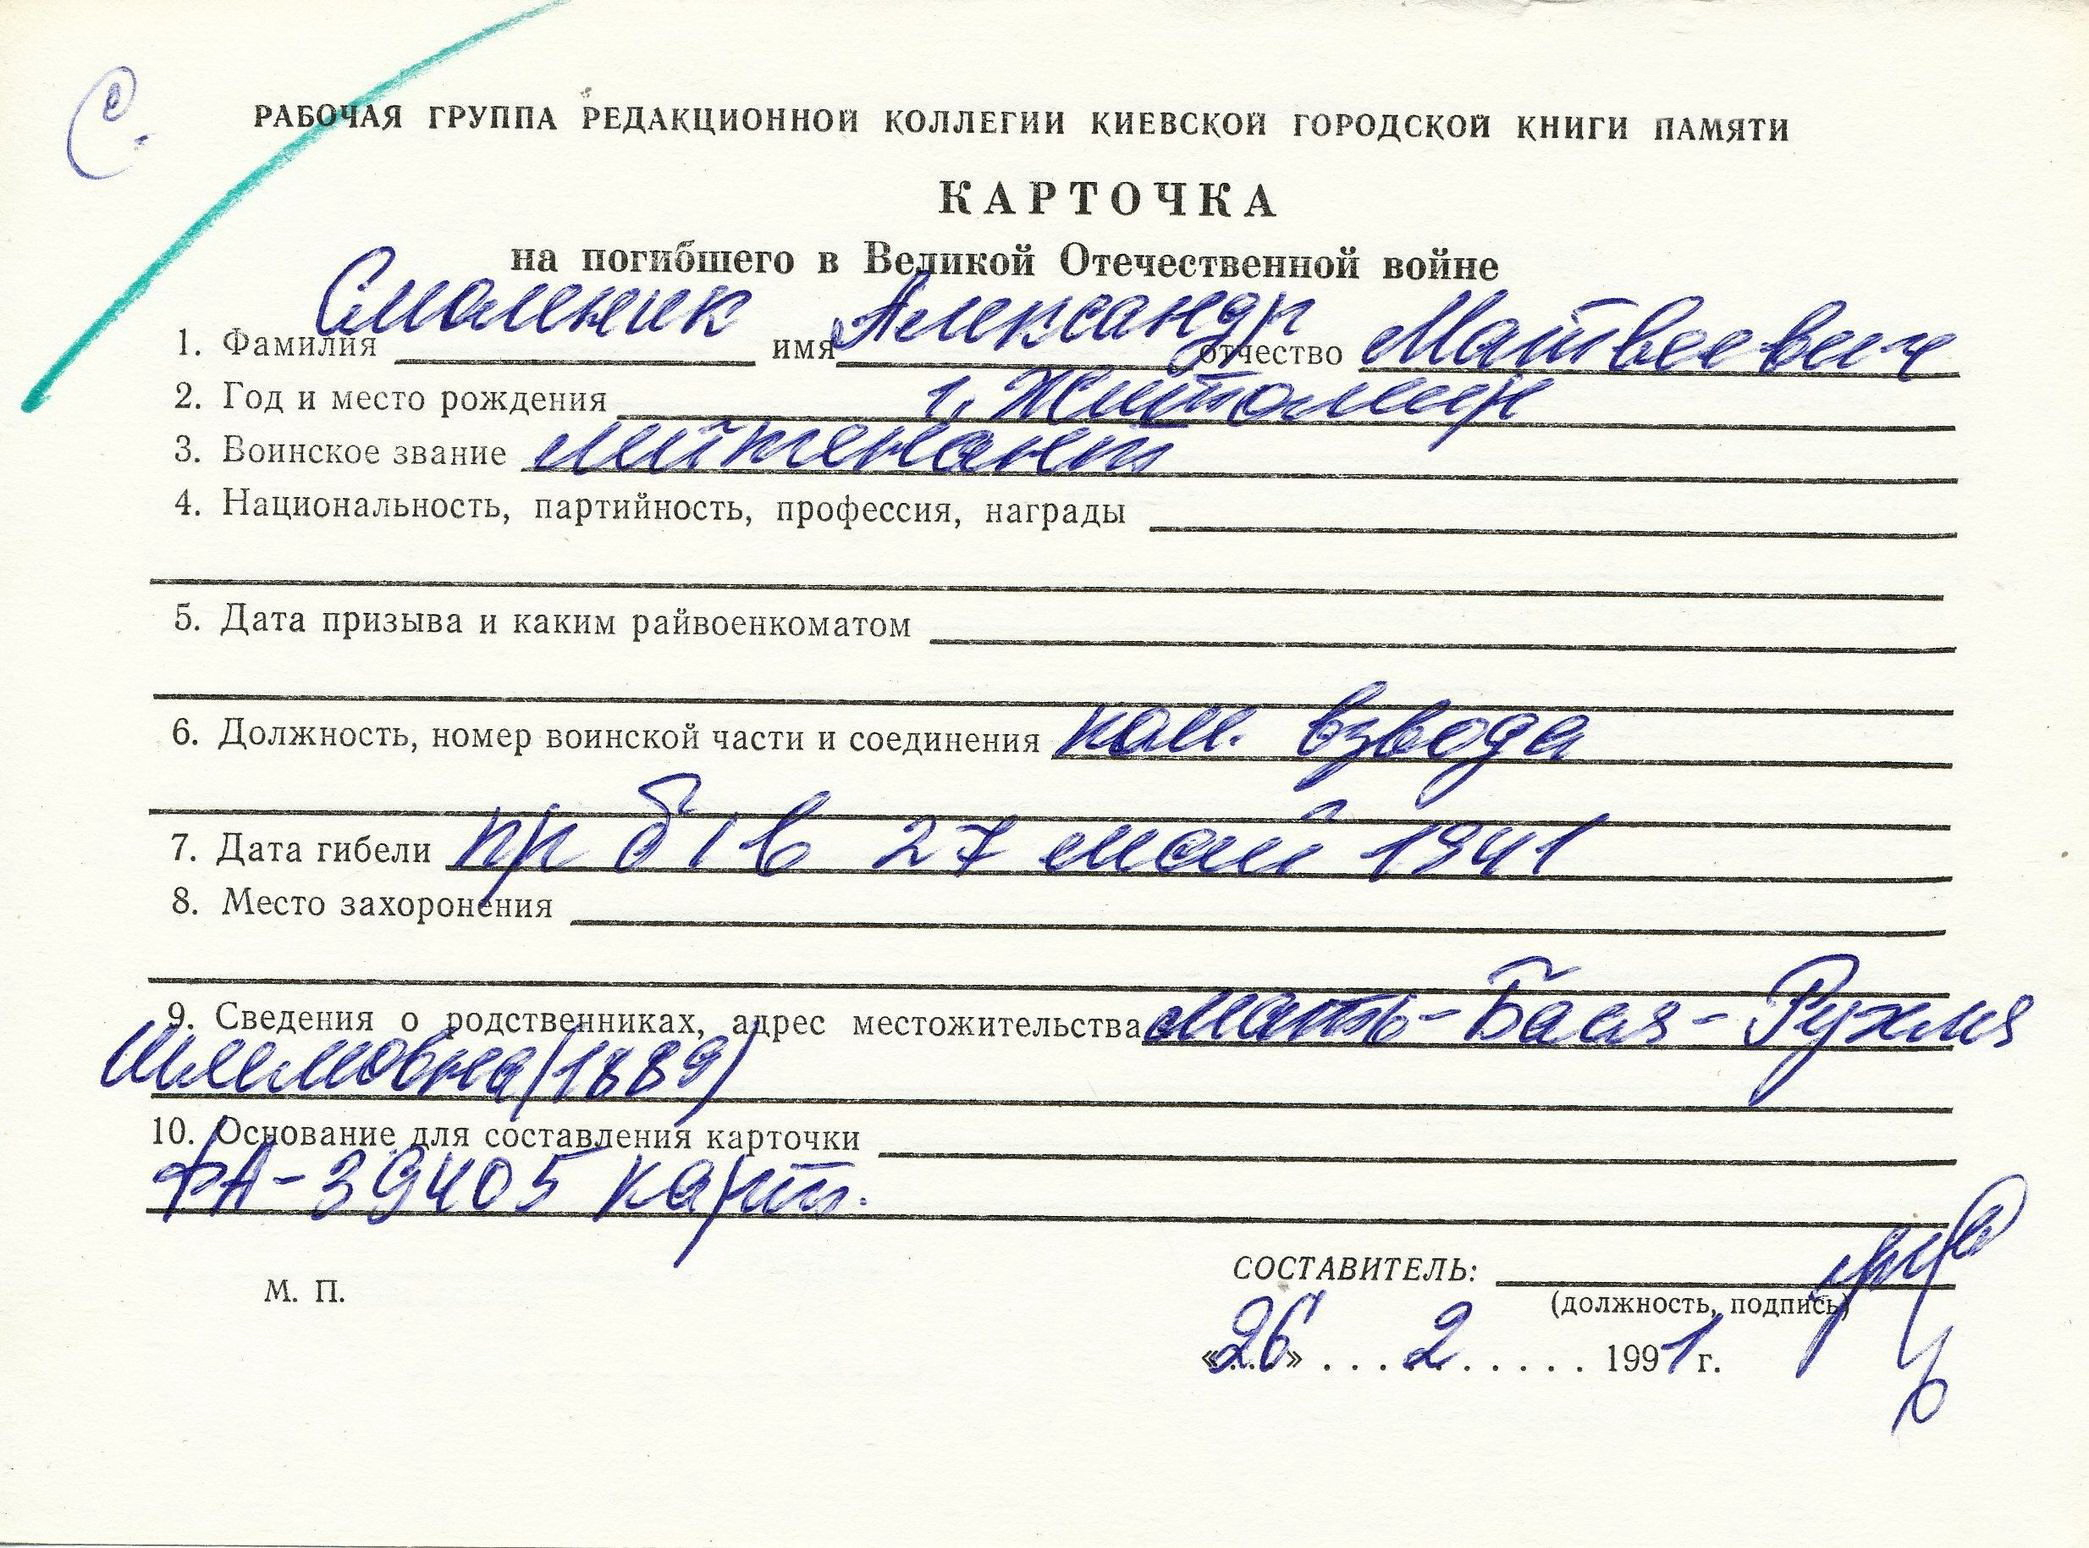 С.
РАБОЧАЯ ГРУППА РЕДАКЦИОННОЙ КОЛЛЕГИИ КИЕВСКОЙ ГОРОДСКОЙ КНИГИ ПАМЯТИ
КАРТОЧКА
на погибшего в Великой Отечественной войне
1. Фамилия Смоленик имя Александр отчество Матвеевич
2. Год и место рождения г. Житомир
3. Воинское звание лейтенант
4. Национальность, партийность, профессия, награды
5. Дата призыва и каким райвоенкоматом
6. Должность, номер воинской части и соединения ком. взвода
7. Дата гибели пр б/в 27 май 1941
8. Место захоронения
9. Сведения о родственниках, адрес местожительства мать-Бася-Рухля
Шлемовна (1889)
10. Основание для составления карточки
фА-39405 карт.
М. П.
СОСТАВИТЕЛЬ:
(должность, подпись)
«26» ... 2 ..... 1991 г.